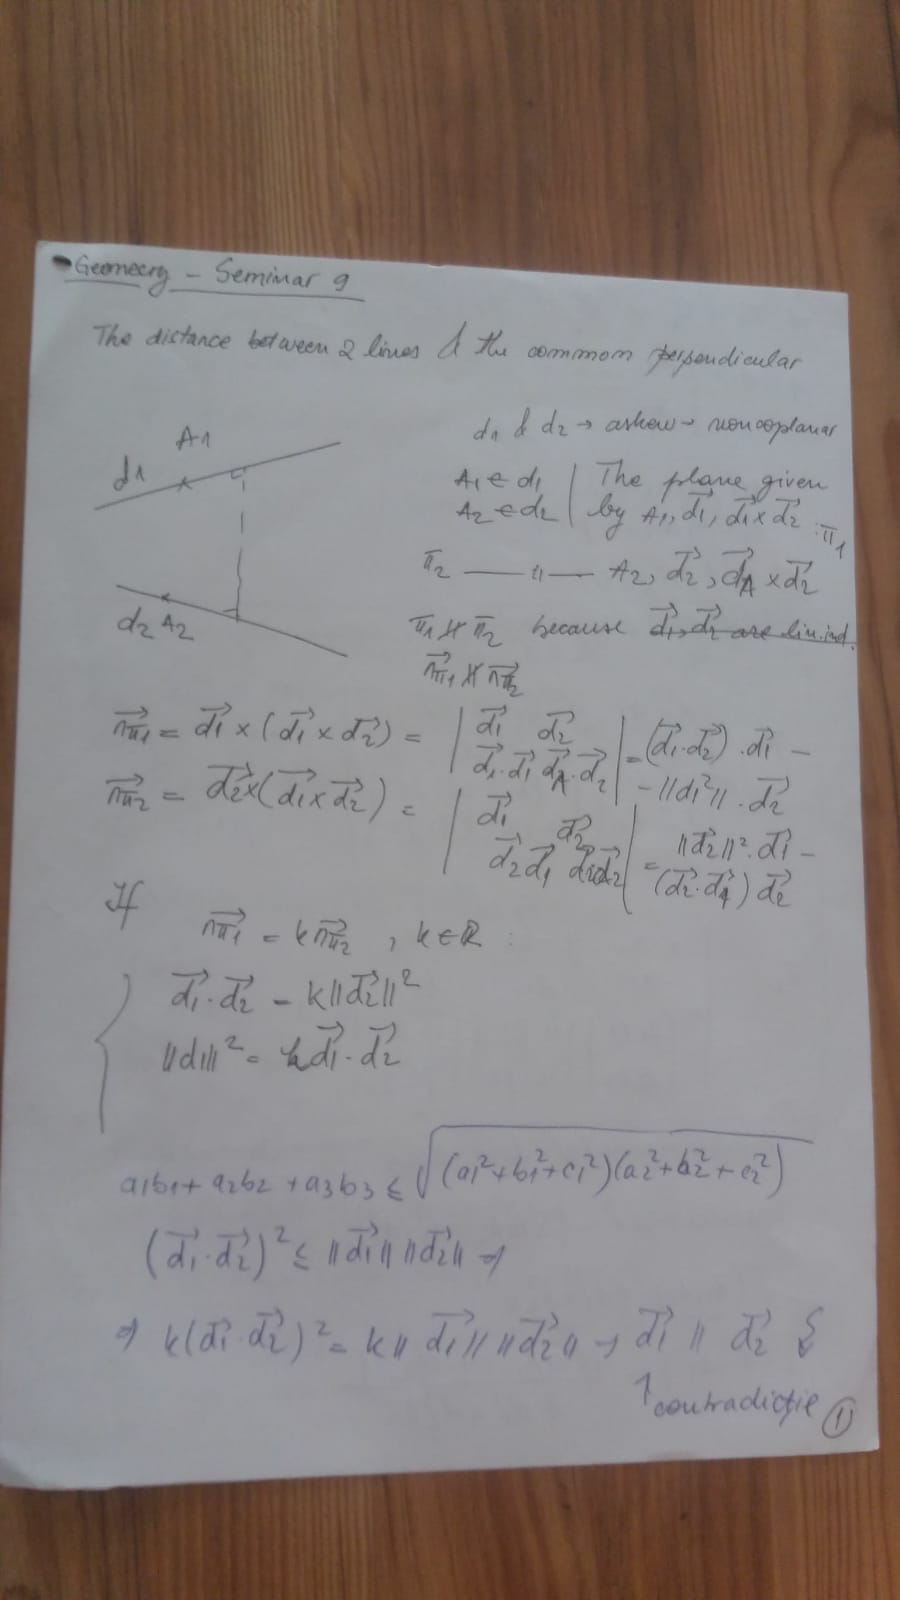 Geometry - Seminar 9
The distance between 2 lines & the common perpendicular
d1 & d2 → askew → noncoplanar
A1
d1
A1 ∈ d1 | The plane given
A2 ∈ d2 | by A1, d⃗1, d⃗1 x d⃗2 : π1
π2 —— 〃 —— A2, d⃗2, d⃗1 x d⃗2
d2 A2
π1 ∦ π2 because d⃗1, d⃗2 are lin. ind.
n⃗π1 ∦ n⃗π2
n⃗π1 = d⃗1 x (d⃗1 x d⃗2) = | d⃗1 d⃗2
d⃗1·d⃗1 d⃗1·d⃗2 | = (d⃗1·d⃗2)·d⃗1 -
- ||d1²||·d⃗2
n⃗π2 = d⃗2 x (d⃗1 x d⃗2) = | d⃗1 d⃗2
d⃗2 d⃗1 d⃗2 d⃗2 | = ||d⃗2||²·d⃗1 -
(d⃗2·d⃗1) d⃗2
If
n⃗π1 = k n⃗π2 , k ∈ R :
d⃗1·d⃗2 = k||d⃗2||²
||d1||² = k d⃗1·d⃗2
a1b1 + a2b2 + a3b3 ≤ √(a1²+b1²+c1²)(a2²+b2²+c2²)
(d⃗1·d⃗2)² ≤ ||d⃗1|| ||d⃗2|| ⇒
⇒ k(d⃗1·d⃗2)² = k||d⃗1|| ||d⃗2|| → d⃗1 || d⃗2
↑ contradicție
1